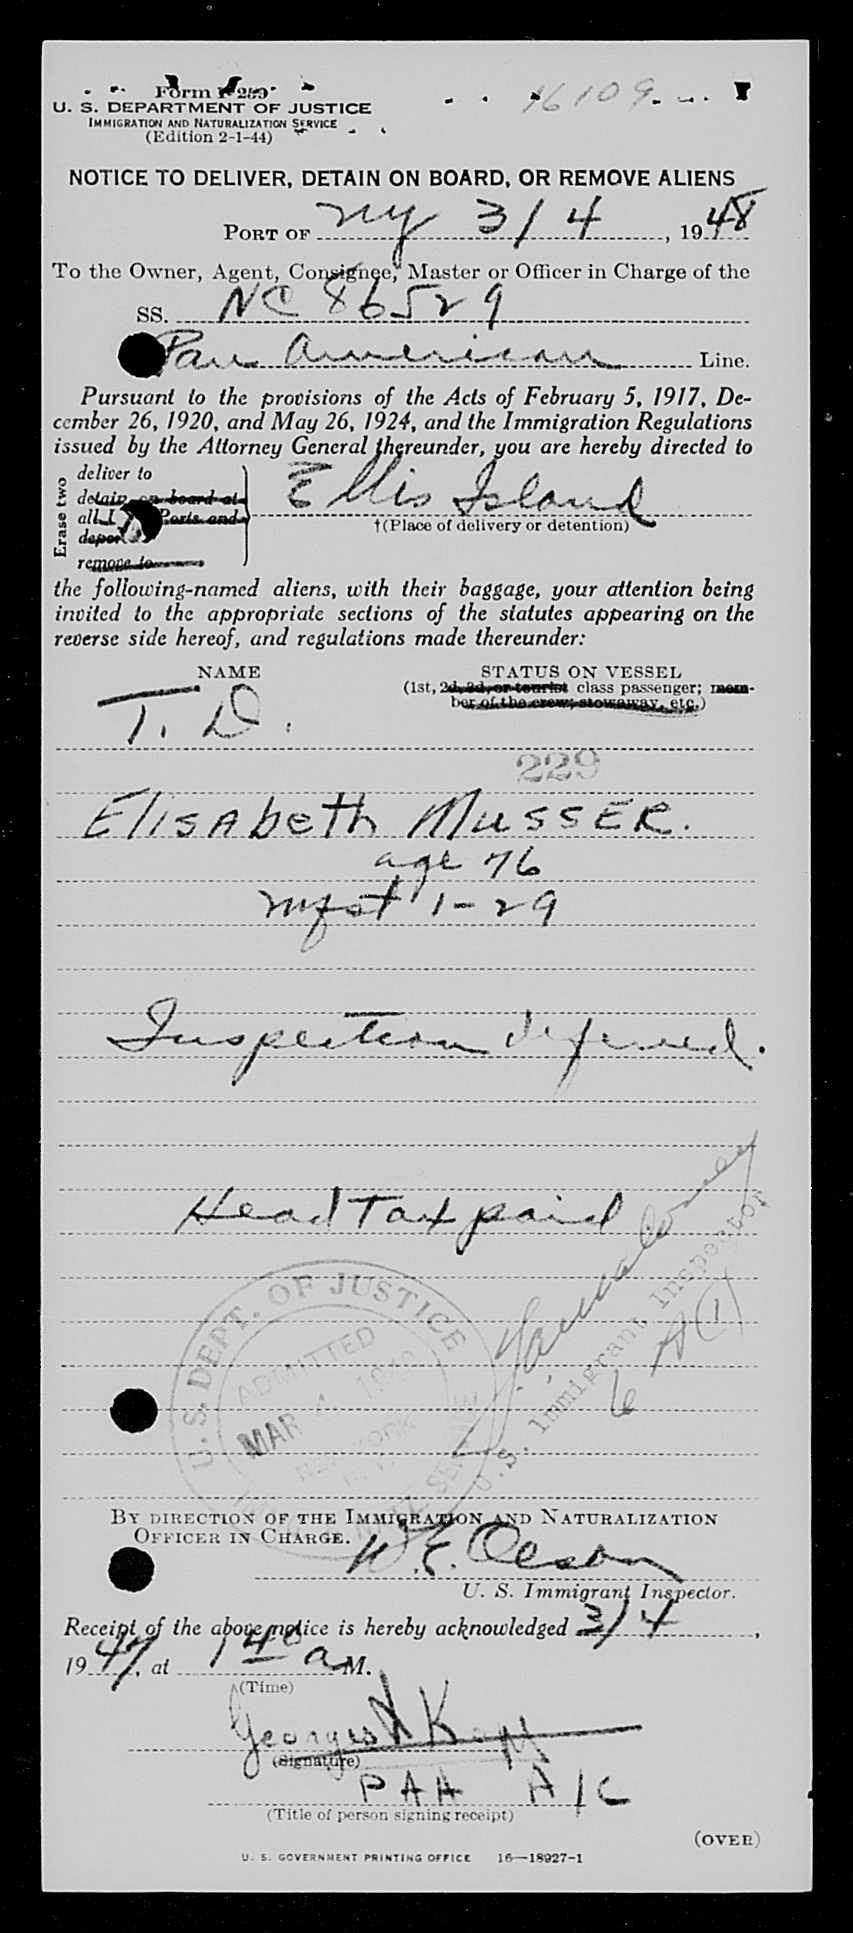 Form I-259
16109
U. S. DEPARTMENT OF JUSTICE
IMMIGRATION AND NATURALIZATION SERVICE
(Edition 2-1-44)
NOTICE TO DELIVER, DETAIN ON BOARD, OR REMOVE ALIENS
PORT OF NY 3/4, 1948
To the Owner, Agent, Consignee, Master or Officer in Charge of the
SS. NC 86529
Pan American Line.
Pursuant to the provisions of the Acts of February 5, 1917, De-
cember 26, 1920, and May 26, 1924, and the Immigration Regulations
issued by the Attorney General thereunder, you are hereby directed to
Erase two
deliver to
detain on board at
all Ports and
remove to
Ellis Island
†(Place of delivery or detention)
the following-named aliens, with their baggage, your attention being
invited to the appropriate sections of the statutes appearing on the
reverse side hereof, and regulations made thereunder:
NAME STATUS ON VESSEL
(1st, 2d, 3d, or tourist class passenger; mem-
ber of the crew; stowaway, etc.)
T. D.
229
Elisabeth Musser.
age 76
mfst 1-29
Inspection deferred.
Head Tax paid
U.S. DEPT. OF JUSTICE
ADMITTED
MAR 4 1948
NEW YORK
N.Y.
U.S. Immigrant Inspector
BY DIRECTION OF THE IMMIGRATION AND NATURALIZATION
OFFICER IN CHARGE.
W.E. Olson
U. S. Immigrant Inspector.
Receipt of the above notice is hereby acknowledged 3/4,
1947, at 1 40 a M.
(Time)
(Signature)
PAA A/C
(Title of person signing receipt)
(OVER)
U. S. GOVERNMENT PRINTING OFFICE 16—18927-1